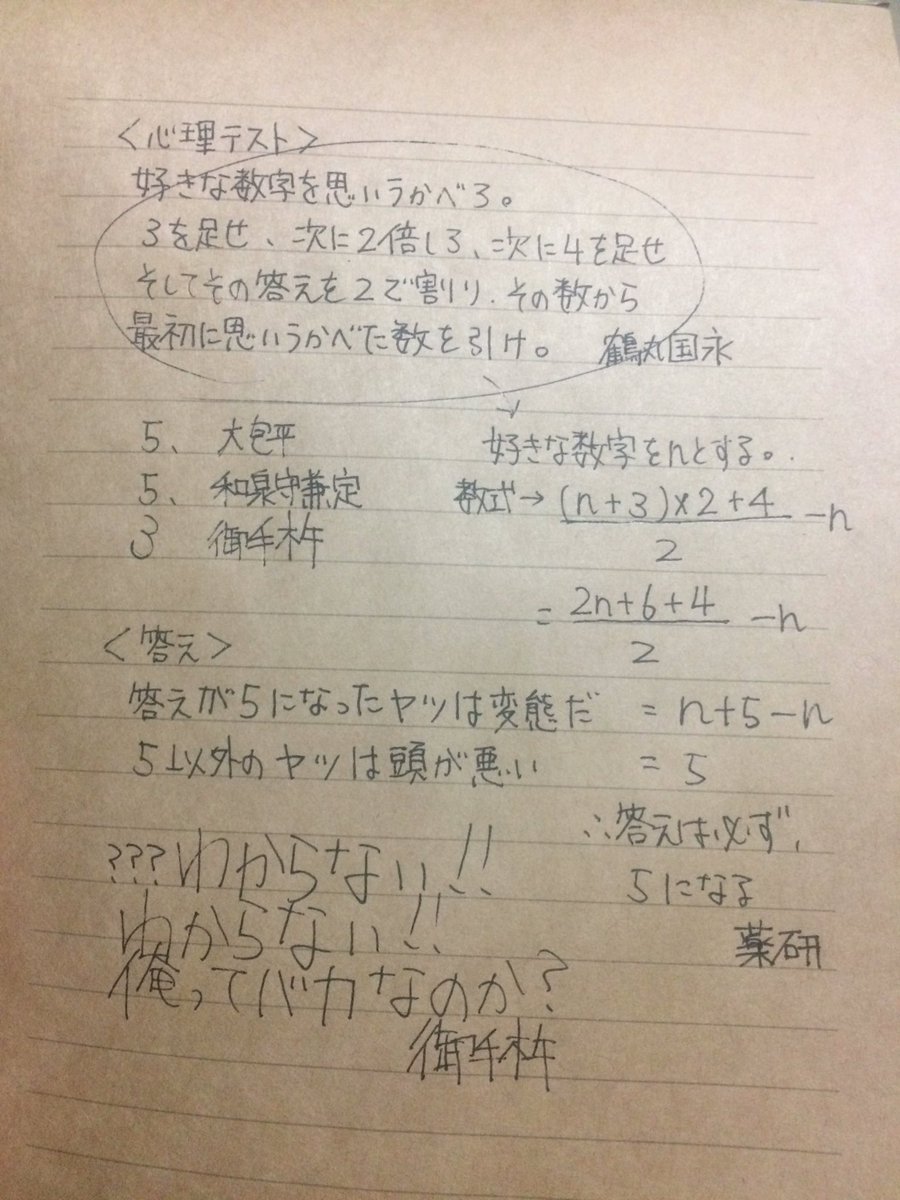 <心理テスト>
好きな数字を思いうかべろ。
3を足せ、次に2倍しろ、次に4を足せ
そしてその答えを2で割り、その数から
最初に思いうかべた数を引け。 鶴丸国永
5、 大包平
5、 和泉守兼定
3 御手杵
好きな数字をnとする。
数式→ (n+3)×2+4 −n
2
= 2n+6+4 −n
2
= n+5−n
= 5
∴答えは必ず、
5になる
薬研
<答え>
答えが5になったヤツは変態だ
5以外のヤツは頭が悪い
???わからない!!
わからない!!
俺ってバカなのか?
御手杵